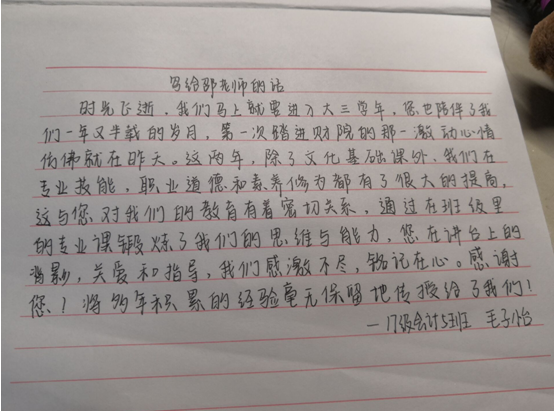 写给邵老师的话
时光飞逝，我们马上就要进入大三学年，您也陪伴了我
们一年又半载的岁月，第一次踏进财院的那一激动心情
仿佛就在昨天。这两年，除了文化基础课外，我们在
专业技能，职业道德和素养修为都有了很大的提高，
这与您对我们的教育有着密切关系，通过在班级里
的专业课锻炼了我们的思维与能力，您在讲台上的
背影，关爱和指导，我们感激不尽，铭记在心。感谢
您！将多年积累的经验毫无保留地传授给了我们！
—17级会计5班 毛子怡